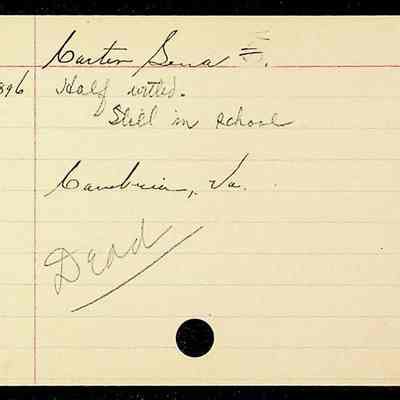 Carter Lena E.
896 Half witted.
Still in school
Cambria, Va.
Dead